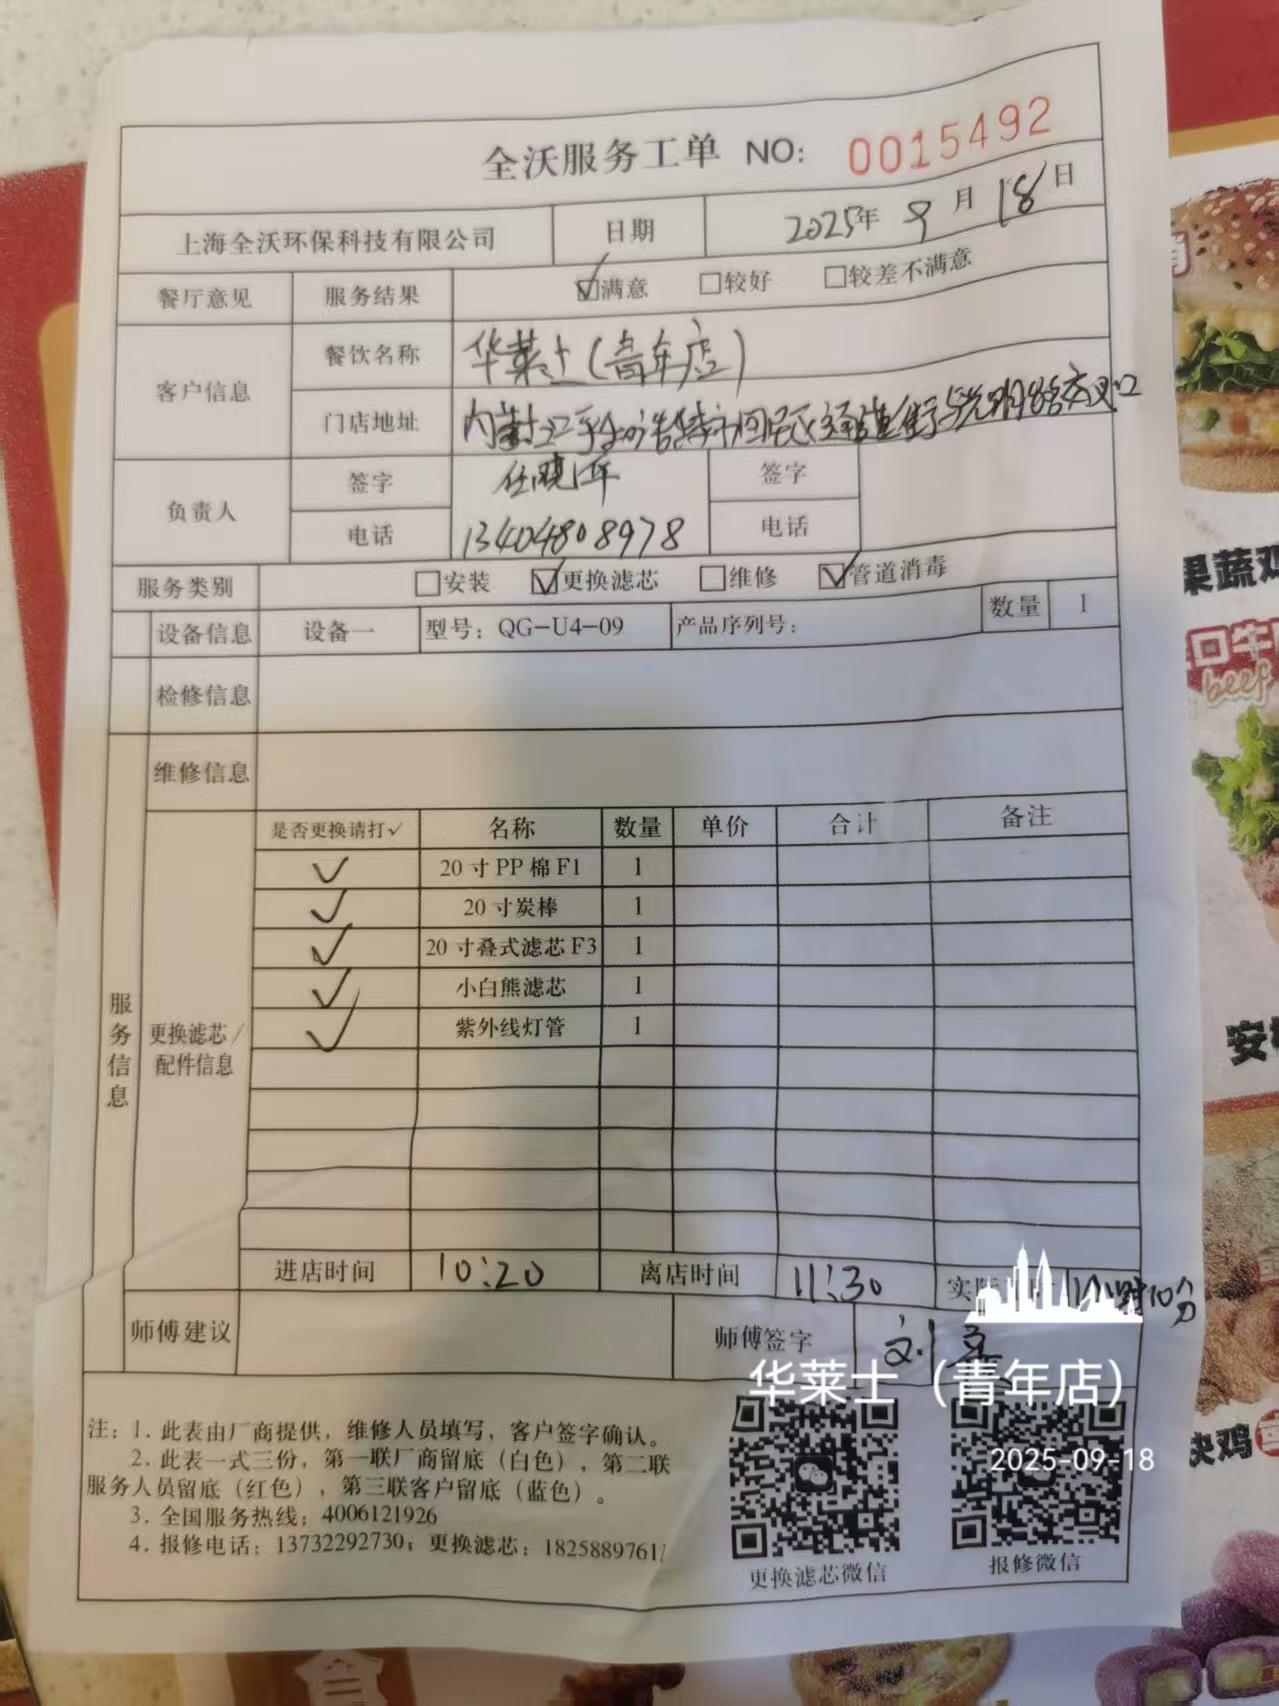 全沃服务工单 NO: 0015492
上海全沃环保科技有限公司 日期 2025年 9月 18日
餐厅意见 服务结果 ☑满意 □较好 □较差不满意
客户信息 餐饮名称 华莱士(青年店)
门店地址 内蒙 呼和浩特市回民区 街与光明路交叉口
负责人 签字 任晓军 签字
电话 13404808978 电话
服务类别 □安装 ☑更换滤芯 □维修 ☑管道消毒
设备信息 设备一 型号：QG-U4-09 产品序列号： 数量 1
检修信息
维修信息
服务信息
更换滤芯/
配件信息
是否更换请打✓ 名称 数量 单价 合计 备注
✓ 20寸PP棉F1 1
✓ 20寸炭棒 1
✓ 20寸叠式滤芯F3 1
✓ 小白熊滤芯 1
✓ 紫外线灯管 1
进店时间 10:20 离店时间 11:30 实际 时 1小时10分
师傅建议 师傅签字 刘
华莱士（青年店）
2025-09-18
注：1. 此表由厂商提供，维修人员填写，客户签字确认。
2. 此表一式三份，第一联厂商留底（白色），第二联
服务人员留底（红色），第三联客户留底（蓝色）。
3. 全国服务热线：4006121926
4. 报修电话：13732292730；更换滤芯：18258897617
更换滤芯微信 报修微信
果蔬鸡
口牛
beef
安
块鸡